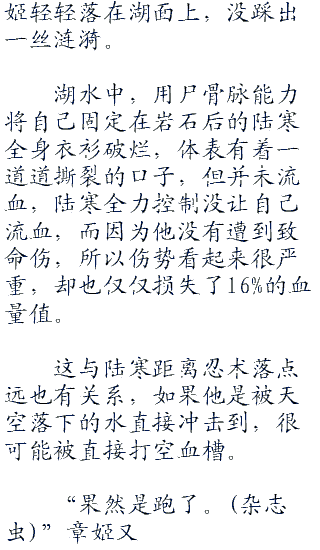 姬轻轻落在湖面上，没踩出
一丝涟漪。
湖水中，用尸骨脉能力
将自己固定在岩石后的陆寒
全身衣衫破烂，体表有着一
道道撕裂的口子，但并未流
血，陆寒全力控制没让自己
流血，而因为他没有遭到致
命伤，所以伤势看起来很严
重，却也仅仅损失了16%的血
量值。
这与陆寒距离忍术落点
远也有关系，如果他是被天
空落下的水直接冲击到，很
可能被直接打空血槽。
“果然是跑了。(杂志
虫)”章姬又